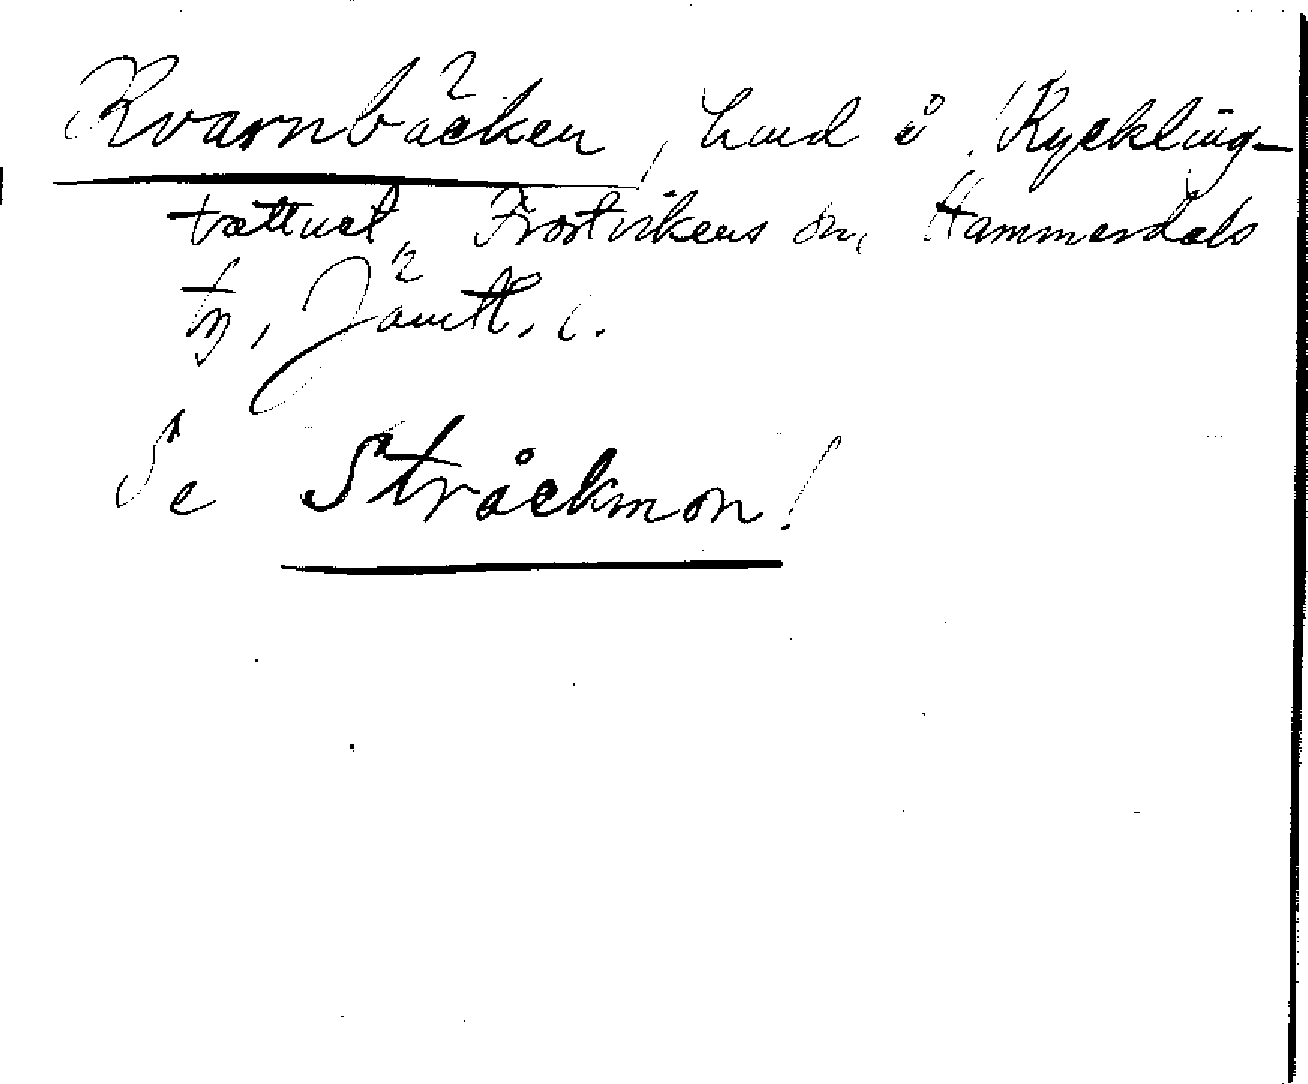 Kvarnbäcken, lmd å Kyckling-
vattnet, Frostvikens sn, Hammerdals
tg, Jämtl. l.
Se Stråckmon!